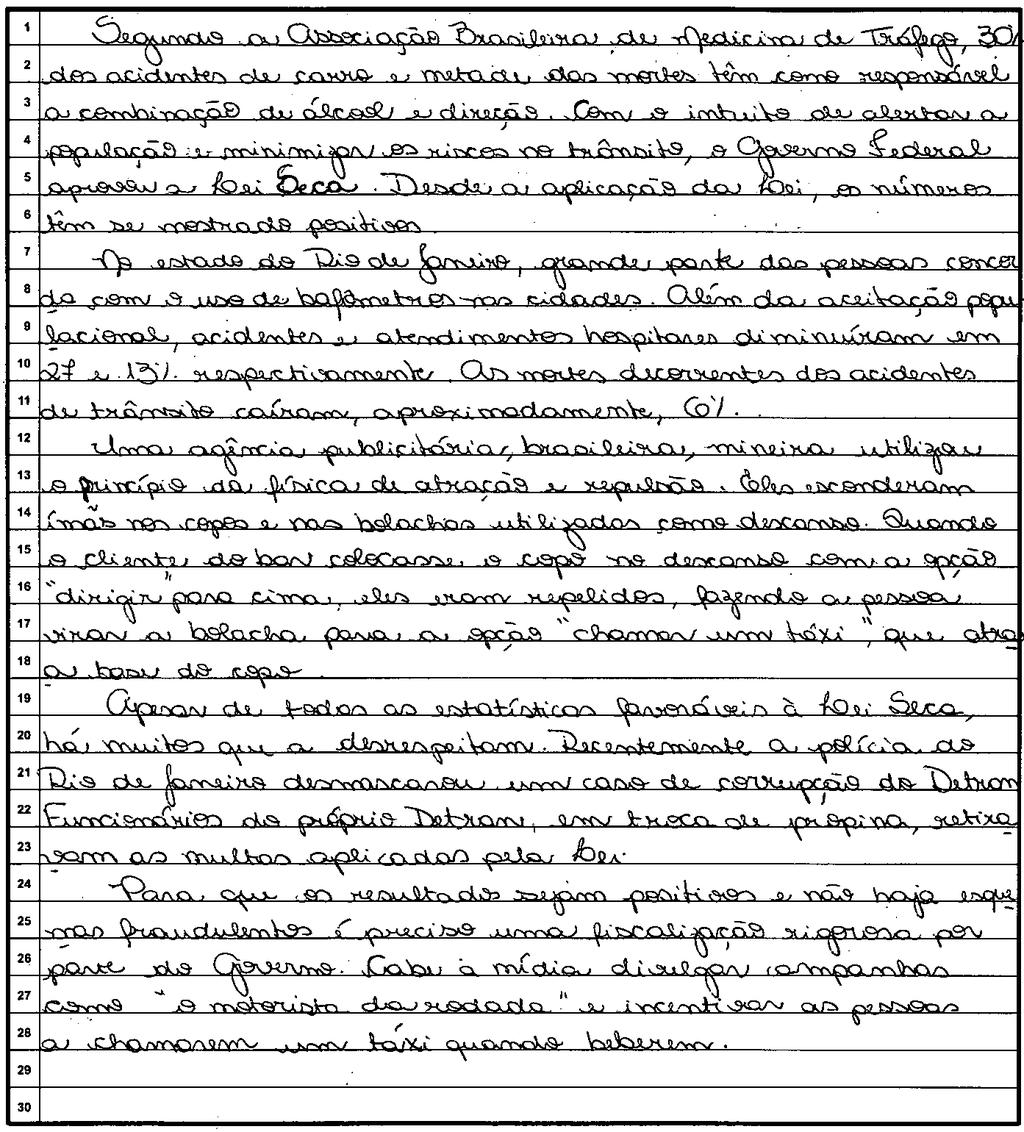 1 Segundo a Associação Brasileira de Medicina de Tráfego, 30%
2 dos acidentes de carro e metade das mortes têm como responsável
3 a combinação de álcool e direção. Com o intuito de alertar a
4 população e minimizar os riscos no trânsito, o Governo Federal
5 aprovou a Lei Seca. Desde a aplicação da Lei, os números
6 têm se mostrado positivos
7 No estado do Rio de Janeiro, grande parte das pessoas concor
8 da com o uso de bafômetros nas cidades. Além da aceitação popu
9 lacional, acidentes e atendimentos hospitares diminuíram em
10 27 e 13% respectivamente. As mortes decorrentes dos acidentes
11 de trânsito caíram, aproximadamente, 6%.
12 Uma agência publicitária, brasileira, mineira utilizou
13 o princípio da física de atração e repulsão. Eles esconderam
14 ímãs nos copos e nas bolachas utilizadas como descanso. Quando
15 o cliente do bar colocasse o copo no descanso com a opção
16 "dirigir" para cima, eles eram repelidos, fazendo a pessoa
17 virar a bolacha para a opção "chamar um táxi", que atra
18 a base do copo.
19 Apesar de todas as estatísticas favoráveis à Lei Seca,
20 há muitos que a desrespeitam. Recentemente a polícia do
21 Rio de Janeiro desmascarou um caso de corrupção do Detran
22 Funcionários do próprio Detran, em troca de propina, retira
23 vam as multas aplicadas pela Lei.
24 Para que os resultados sejam positivos e não haja esque
25 mas fraudulentos é preciso uma fiscalização rigorosa por
26 parte do Governo. Cabe à mídia divulgar campanhas
27 como "o motorista da rodada" e incentivar as pessoas
28 a chamarem um táxi quando beberem.
29
30